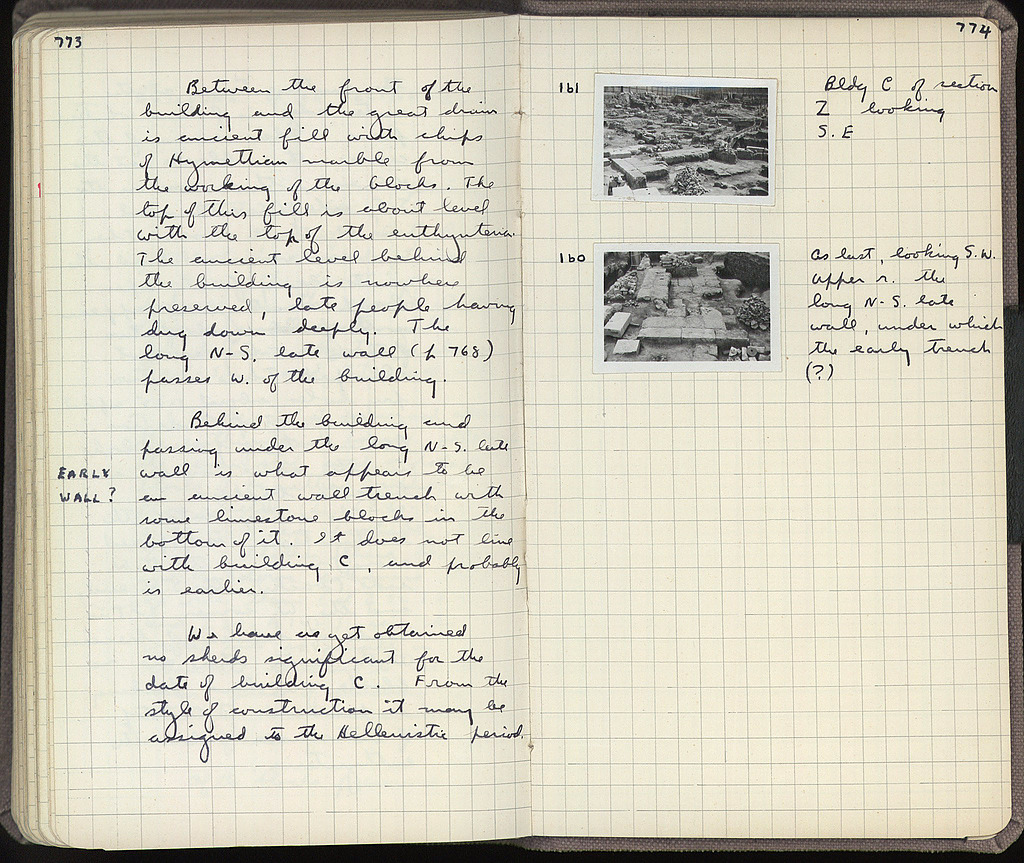 773
Between the front of the
building and the great drain
is ancient fill with chips
of Hymettian marble from
the working of the blocks. The
top of this fill is about level
with the top of the euthynteria.
The ancient level behind
the building is nowhere
preserved, late people having
dug down deeply. The
long N-S. late wall (p 768)
passes W. of the building.
Behind the building and
passing under the long N-S. late
EARLY
WALL?
wall is what appears to be
an ancient wall trench with
some limestone blocks in the
bottom of it. It does not line
with building C, and probably
is earlier.
We have as yet obtained
no sherds significant for the
date of building C. From the
style of construction it may be
assigned to the Hellenistic period.
774
161
Bldg C of section
Z looking
S. E
160
As last, looking S.W.
upper r. the
long N-S. late
wall, under which
the early trench
(?)